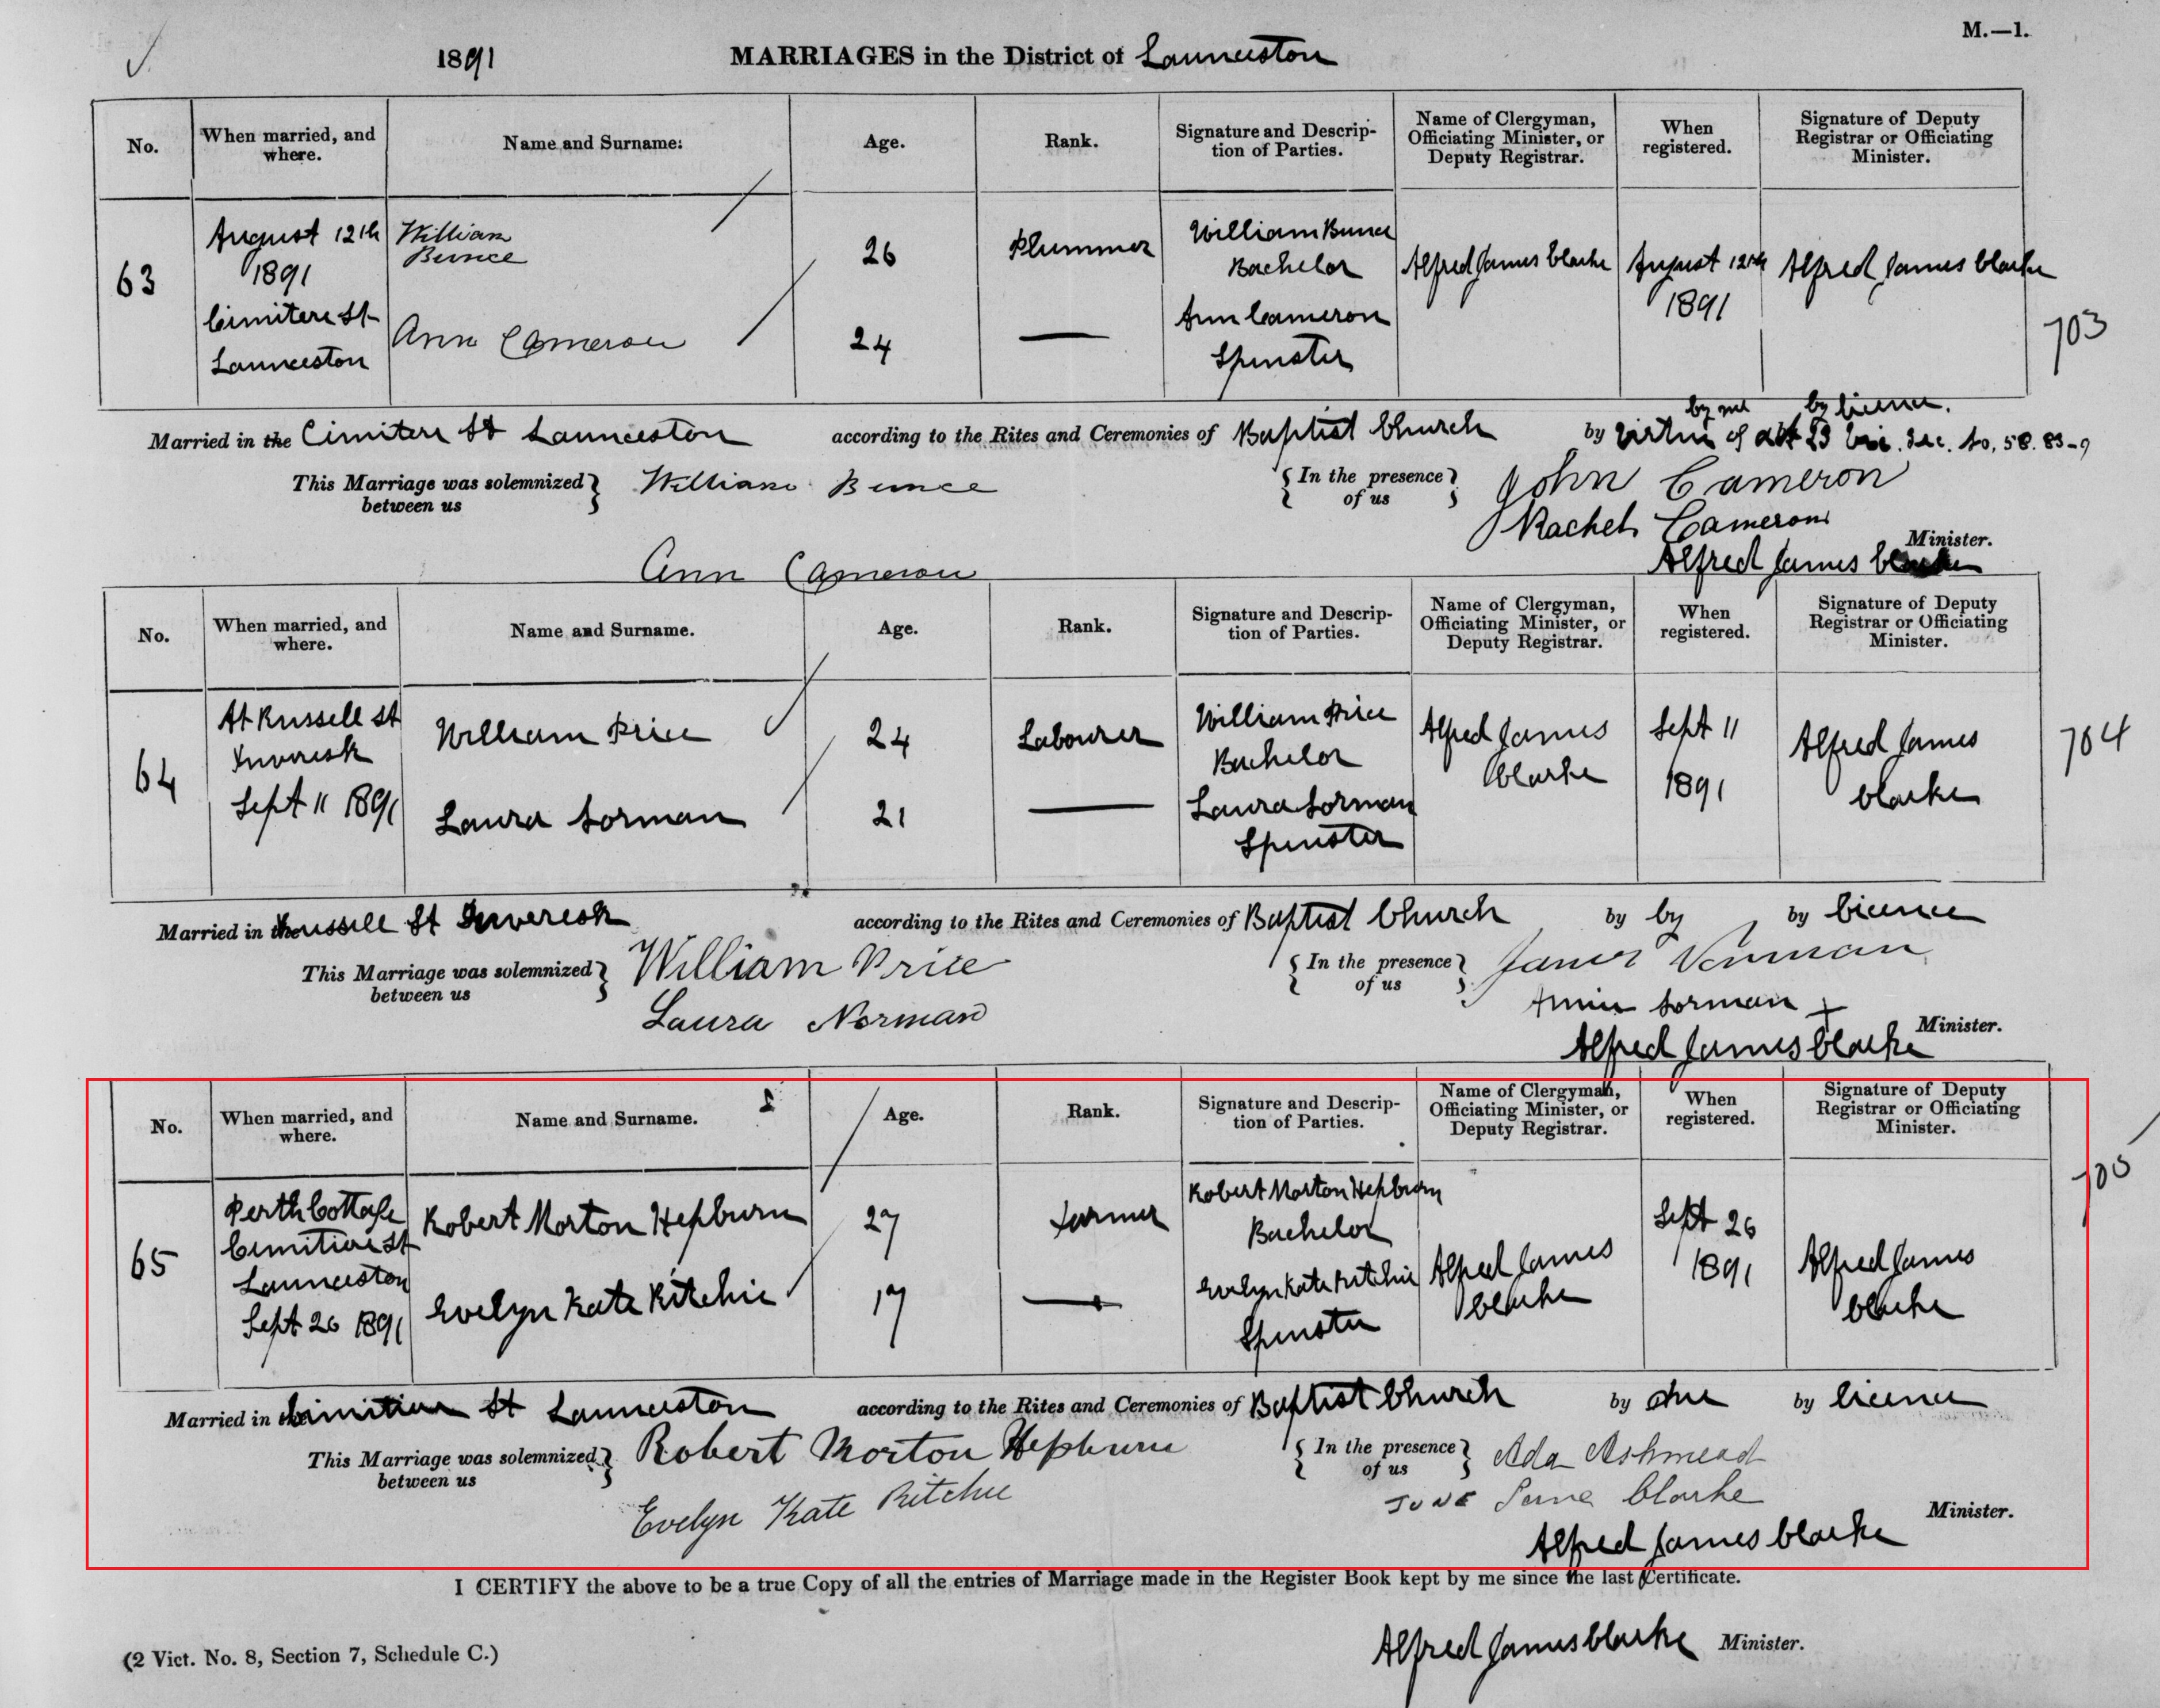 M.—1.
1891 MARRIAGES in the District of Launceston
No. When married, and where. Name and Surname. Age. Rank. Signature and Description of Parties. Name of Clergyman, Officiating Minister, or Deputy Registrar. When registered. Signature of Deputy Registrar or Officiating Minister.
63
August 12th
1891
Cimitere St
Launceston
William
Bunce
Ann Cameron
26
24
Plummer
William Bunce
Bachelor
Ann Cameron
Spinster
Alfred James Clarke
August 12th
1891
Alfred James Clarke
703
by me by licence.
Married in the Cimitere St Launceston according to the Rites and Ceremonies of Baptist Church by virtue of act 23 Vic. Sec. 50, 58. 83-9
This Marriage was solemnized between us William Bunce
Ann Cameron
In the presence of us John Cameron
Rachel Cameron
Minister.
Alfred James Clarke
No. When married, and where. Name and Surname. Age. Rank. Signature and Description of Parties. Name of Clergyman, Officiating Minister, or Deputy Registrar. When registered. Signature of Deputy Registrar or Officiating Minister.
64
At Russell St
Inveresk
Sept 11 1891
William Price
Laura Norman
24
21
Labourer
William Price
Bachelor
Laura Norman
Spinster
Alfred James
Clarke
Sept 11
1891
Alfred James
Clarke
704
Married in the Russell St Inveresk according to the Rites and Ceremonies of Baptist Church by by by licence
This Marriage was solemnized between us William Price
Laura Norman
In the presence of us James Norman
Annie Norman X
Minister.
Alfred James Clarke
No. When married, and where. Name and Surname. Age. Rank. Signature and Description of Parties. Name of Clergyman, Officiating Minister, or Deputy Registrar. When registered. Signature of Deputy Registrar or Officiating Minister.
65
Perth Cottage
Cimitiere St
Launceston
Sept 26 1891
Robert Morton Hepburn
Evelyn Kate Ritchie
27
17
Farmer
Robert Morton Hepburn
Bachelor
Evelyn Kate Ritchie
Spinster
Alfred James
Clarke
Sept 26
1891
Alfred James
Clarke
705
Married in the Cimitiere St Launceston according to the Rites and Ceremonies of Baptist Church by by licence
This Marriage was solemnized between us Robert Morton Hepburn
Evelyn Kate Ritchie
In the presence of us Ada Ashmead
JUNE Clarke
Minister.
Alfred James Clarke
I CERTIFY the above to be a true Copy of all the entries of Marriage made in the Register Book kept by me since the last Certificate.
Alfred James Clarke Minister.
(2 Vict. No. 8, Section 7, Schedule C.)